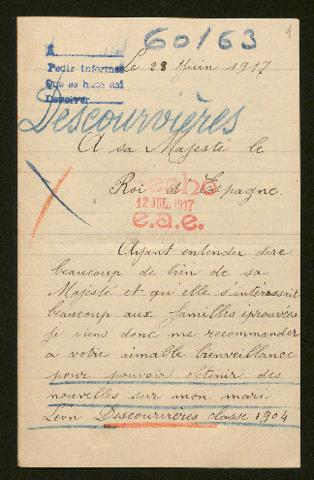 60163
1
A
Pedir informes
Que se haga así
Devolver
Le 28 Juin 1917
Descourvières
A sa Majesté le
Roi d'Espagne.
12 JUL. 1917
e.a.e.
Ayant entender dire
beaucoup de bien de sa
Majesté et qu'elle s'intéressait
beaucoup aux familles éprouvées
je viens donc me recommander
a votre aimable bienveillance
pour pouvoir obtenir des
nouvelles sur mon mari
Léon Descourvières classe 1904